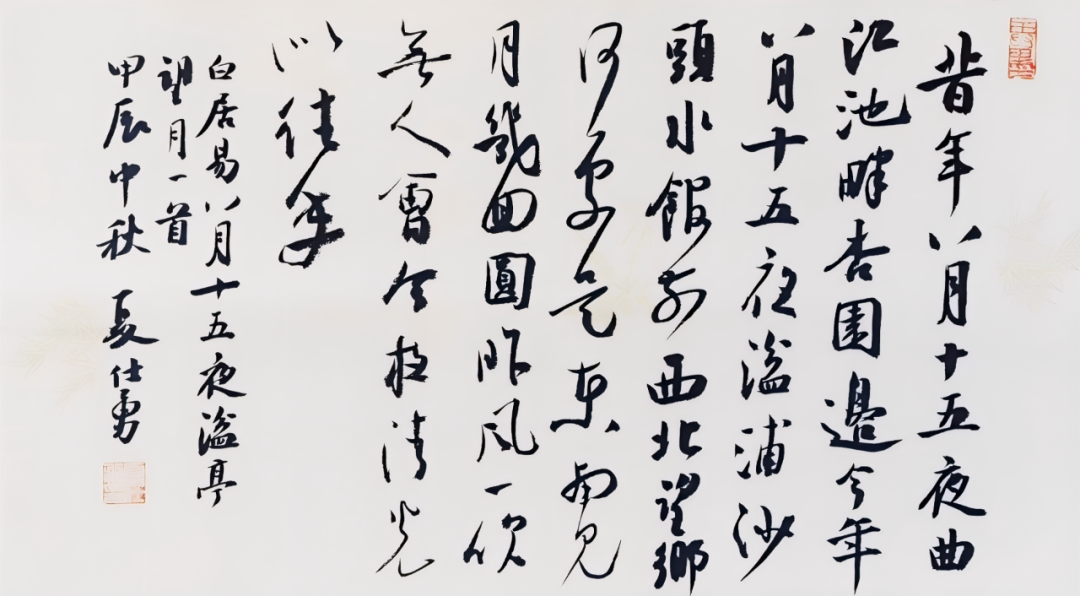 昔年八月十五夜曲
江池畔杏園邊今年
八月十五夜湓浦沙
頭水館前西北望鄉
何處是東南見
月幾回圓昨風一吹
無人會今夜清光
似往年
白居易八月十五夜湓亭
望月一首
甲辰中秋 夏仕勇